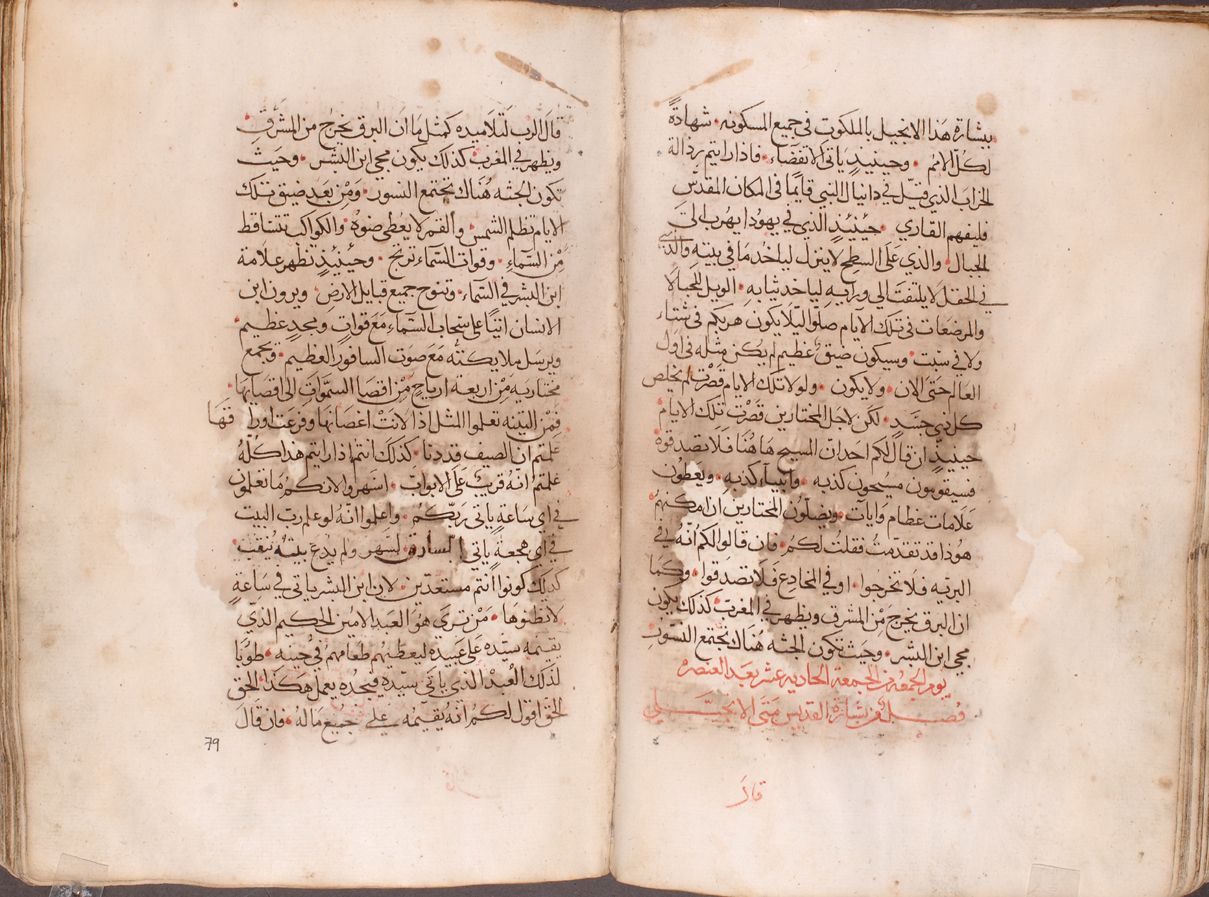 بشارة هذا الانجيل بالملكوت في جميع المسكونه شهادةً
لكل الامم وحينيدٍ ياتى الانقضاء فاذا رايتم رذالة
الخراب الذي قيل في دانيال النبي قايمًا في المكان المقدس
فليفهم القاري حينئيدٍ الذي في يهودا يهرب الى
الجبال والذي على السطح لا ينزل لياخد ما في بيته والذي
في الحقل لا يلتفت الى ورايه لياخد ثيابه الويل للحبالا
والمرضعات في تلك الايام صلّوا ليلا يكون هربكم في شتاء
ولا في سبت وسيكون ضيق عظيم لم يكن مثله في اول
العالم حتى الان ولا يكون ولولا تلك الايام قصرت لم يخلص
كل ذي جسدٍ لكن لاجل المختارين قصرت تلك الايام
حينيدٍ ان قال لكم احدان المسيح هاهنا فلا تصدقوه
فسيقومون مسيحون كذبه وانبياء كذبه ويعطون
علامات عظام وايات ويضلون المختارين ان امكنهم
هودا قد تقدمت فقلت لكم فان قالوا لكم انه في
البريه فلا تخرجوا او في المخادع فلا تصدقوا وكما
ان البرق يخرج من المشرق ويظهر في المغرب كذلك يكون
مجي ابن البشر وحيث تكون الجثه هناك تجتمع النسور
يوم الجمعه من الجمعة الحاديه عشر بعد العنصره
فصل من بشارة القديس متى الانجيلي
قال
قال الرب لتلاميده كمثل ما ان البرق يخرج من المشرق
ويظهر في المغرب كذلك يكون مجي ابن البشر وحيث
تكون الجثه هناك تجتمع النسور ومن بعد ضيق تلك
الايام تظلم الشمس والقمر لا يعطى ضوه والكواكب تتساقط
من السماء وقوات السماء ترتج وحينيذٍ تظهر علامة
ابن البشر في السماء وتنوح جميع قبايل الارض ويرون ابن
الانسان اتيًا على سحاب السماء مع قوات ومجدٍ عظيم
ويرسل ملايكته مع صوت السافور العظيم ويجمع
مختاريه من اربعة ارياح من اقصا السموات الى اقصايها
فمن التينه تعلموا المثل اذا لانت اغصانها وفرعت اوراقها
علمتم ان الصيف قد دنا كذلك انتم اذا رايتم هدا كله
علمتم انه قريب على الابواب اسهروا لانكم ما تعلمون
في اي ساعةٍ ياتى ربكم واعلموا انه لو علم رب البيت
في اي هجعة ياتى السارق لسهر ولم يدع بيته ينقب
كدلك كونوا انتم مستعدين لان ابن البشر ياتى في ساعة
لا تظنوها من تري هو العبد الامين الحكيم الذي
يقيمه سيده على عبيده ليعطيهم طعامهم في حينه طوبا
لذلك العبد الذي ياتي سيده فيجده يعمل هكذا الحق
الحق اقول لكم انه يقيمه على جميع ماله فان قال
79